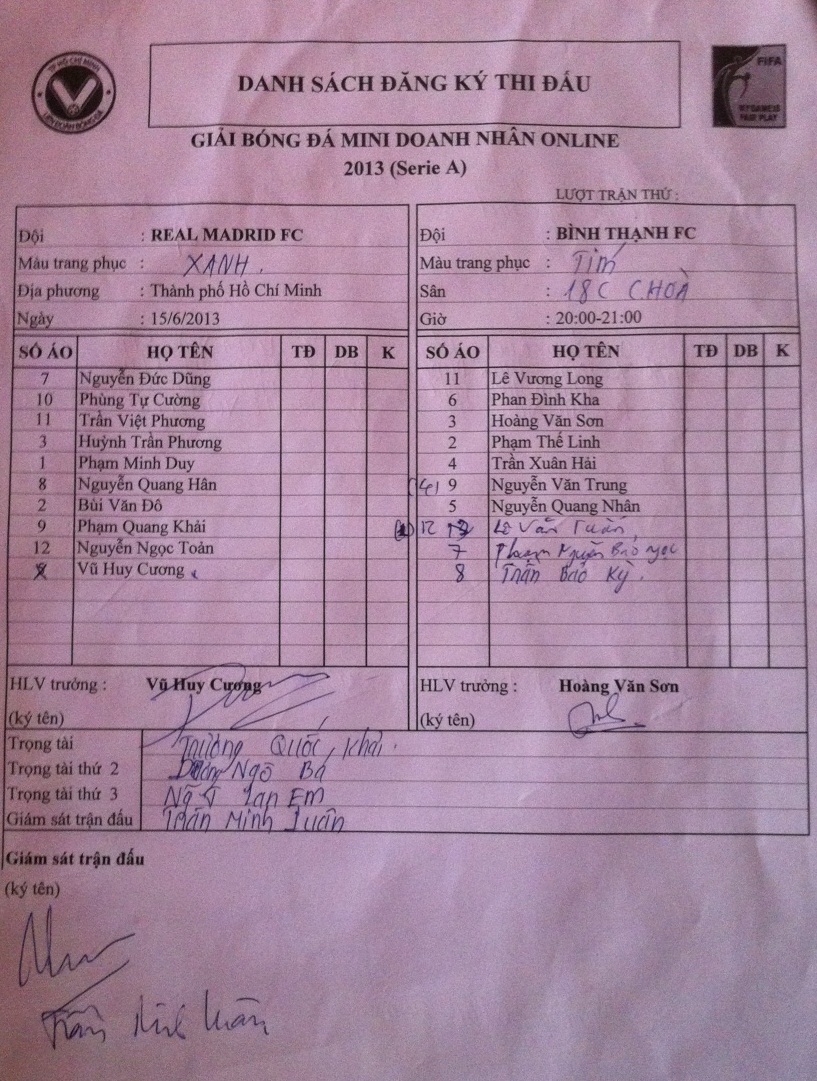 TP HỒ CHÍ MINH
LIÊN ĐOÀN BÓNG ĐÁ
DANH SÁCH ĐĂNG KÝ THI ĐẤU
FIFA
MY GAME IS
FAIR PLAY
GIẢI BÓNG ĐÁ MINI DOANH NHÂN ONLINE
2013 (Serie A)
LƯỢT TRẬN THỨ :
Đội : REAL MADRID FC
Màu trang phục : XANH.
Địa phương : Thành phố Hồ Chí Minh
Ngày : 15/6/2013
Đội : BÌNH THẠNH FC
Màu trang phục : TÍM
Sân : 18C C.HOÀ
Giờ : 20:00-21:00
SỐ ÁO HỌ TÊN TĐ DB K
7 Nguyễn Đức Dũng
10 Phùng Tự Cường
11 Trần Việt Phương
3 Huỳnh Trần Phương
1 Phạm Minh Duy
8 Nguyễn Quang Hân
2 Bùi Văn Đô
9 Phạm Quang Khải
12 Nguyễn Ngọc Toản
Vũ Huy Cương
SỐ ÁO HỌ TÊN TĐ DB K
11 Lê Vương Long
6 Phan Đình Kha
3 Hoàng Văn Sơn
2 Phạm Thế Linh
4 Trần Xuân Hải
9 Nguyễn Văn Trung
5 Nguyễn Quang Nhân
12 Lê Văn Tuấn
7 Phạm Nguyễn Bảo Ngọc
8 Trần Bảo Kỳ.
HLV trưởng : Vũ Huy Cương
(ký tên)
HLV trưởng : Hoàng Văn Sơn
(ký tên)
Trọng tài Trương Quốc Khải.
Trọng tài thứ 2 Dương Ngô Bá
Trọng tài thứ 3 Em
Giám sát trận đấu Trần Minh Luân
Giám sát trận đấu
(ký tên)
Trần Minh Luân